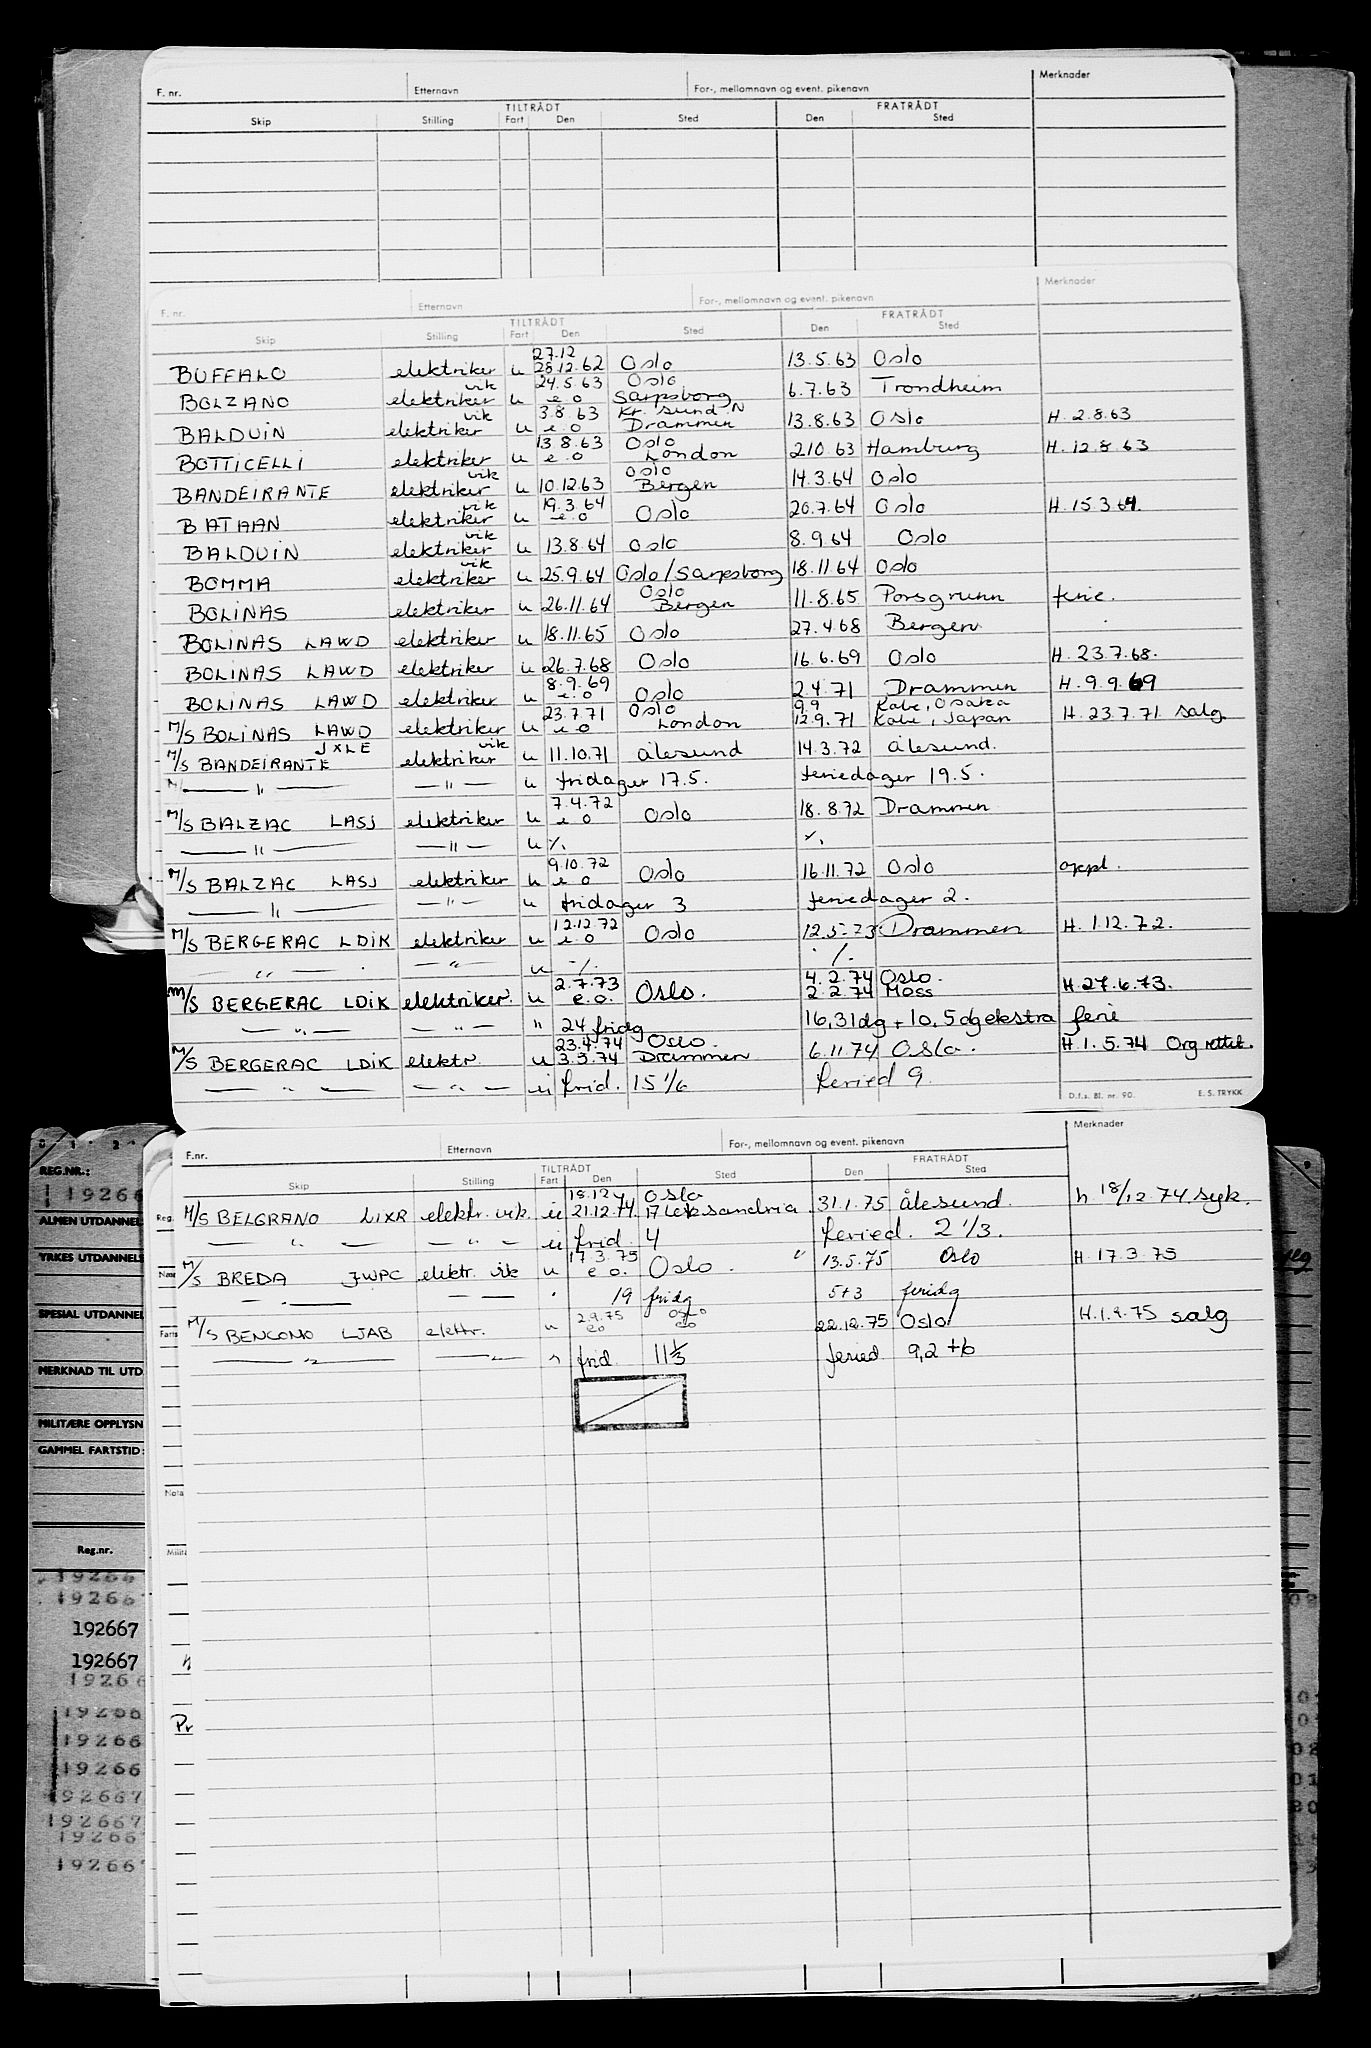 F. nr. Etternavn For-, mellomnavn og event. pikenavn Merknader
TILTRÅDT FRATRÅDT
Skip Stilling Fart Den Sted Den Sted
F. nr. Etternavn For-, mellomnavn og event. pikenavn Merknader
TILTRÅDT FRATRÅDT
Skip Stilling Fart Den Sted Den Sted
27.12
BUFFALO elektriker u 28.12.62 Oslo 13.5.63 Oslo
vik 24.5.63 Oslo
BOLZANO elektriker u e o Sarpsborg 6.7.63 Trondheim
vik 3.8.63 Kr. sund N
BALDUIN elektriker u e o Drammen 13.8.63 Oslo H. 2.8.63
13.8.63 Oslo
BOTTICELLI elektriker u e o London 2.10.63 Hamburg H. 12.8.63
vik Oslo
BANDEIRANTE elektriker u 10.12.63 Bergen 14.3.64 Oslo
vik 19.3.64
BATAAN elektriker u e o Oslo 20.7.64 Oslo H. 15.3.64.
vik
BALDUIN elektriker u 13.8.64 Oslo 8.9.64 Oslo
vik
BOMMA elektriker u 25.9.64 Oslo/Sarpsborg 18.11.64 Oslo
Oslo
BOLINAS elektriker u 26.11.64 Bergen 11.8.65 Porsgrunn ferie.
BOLINAS LAWD elektriker u 18.11.65 Oslo 27.4.68 Bergen
BOLINAS LAWD elektriker u 26.7.68 Oslo 16.6.69 Oslo H. 23.7.68.
8.9.69
BOLINAS LAWD elektriker u e o Oslo 2.4.71 Drammen H. 9.9.69
23.7.71 Oslo 9.9 Kobe, Osaka
M/S BOLINAS LAWD elektriker u e o London 12.9.71 Kobe, Japan H. 23.7.71 salg
JXLE vik
M/S BANDEIRANTE elektriker u 11.10.71 Ålesund 14.3.72 Ålesund.
— " — — " — u fridager 17.5. feriedager 19.5.
7.4.72
M/S BALZAC LASJ elektriker u e o Oslo 18.8.72 Drammen
— " — — " — u ./. ./.
9.10.72
M/S BALZAC LASJ elektriker u e o Oslo 16.11.72 Oslo oppl.
— " — — " — u fridager 3 feriedager 2.
12.12.72
M/S BERGERAC LDIK elektriker u e o Oslo 12.5.73 Drammen H. 1.12.72.
— " — — " — u ./. ./.
2.7.73 4.2.74 Oslo.
M/S BERGERAC LDIK elektriker. u e.o. Oslo. 2.2.74 Moss H. 27.6.73.
— " — — " — " 24 fridg 16,31dg + 10,5dg ekstra ferie
23.4.74 Oslo.
M/S BERGERAC LDIK elektr. u 3.5.74 Drammen 6.11.74 Oslo. H. 1.5.74 Org rettet.
— " — — " — u frid. 15 1/6 feried 9.
D.f.s. Bl. nr. 90. E. S. TRYKK
F.nr. Etternavn For-, mellomnavn og event. pikenavn Merknader
TILTRÅDT FRATRÅDT
Skip Stilling Fart Den Sted Den Sted
18.12 Oslo
M/S BELGRANO LIXR elektr. vik. u 21.12.74 31.1.75 Ålesund. h. 18/12.74 syk.
— " — — " — u frid. 4 feried. 2 1/3.
17.3.75
M/S BREDA JWPC elektr. vik u e o. Oslo. " 13.5.75 Oslo H. 17.3.75
— " — — " — " 19 fridg 5+3 feridg
2.9.75 Oslo
M/S BENCOMO LJAB elektr. u eo eo 22.12.75 Oslo H. 1.9.75 salg
— " — — " — " frid. 11 1/3 feried. 9,2 + 6
0 1 2
REG.NR.:
19266
ALMEN UTDANNEL
YRKES UTDANNELS
SPESIAL UTDANNEL
MERKNAD TIL UTD
MILITÆRE OPPLYSN
GAMMEL FARTSTID:
Reg.nr.
19266
19266
192667
192667
19266
19266
19266
19266
192667
192667
19266
192667
Reg.
Nav
Farts
Nota
Milit
Pr